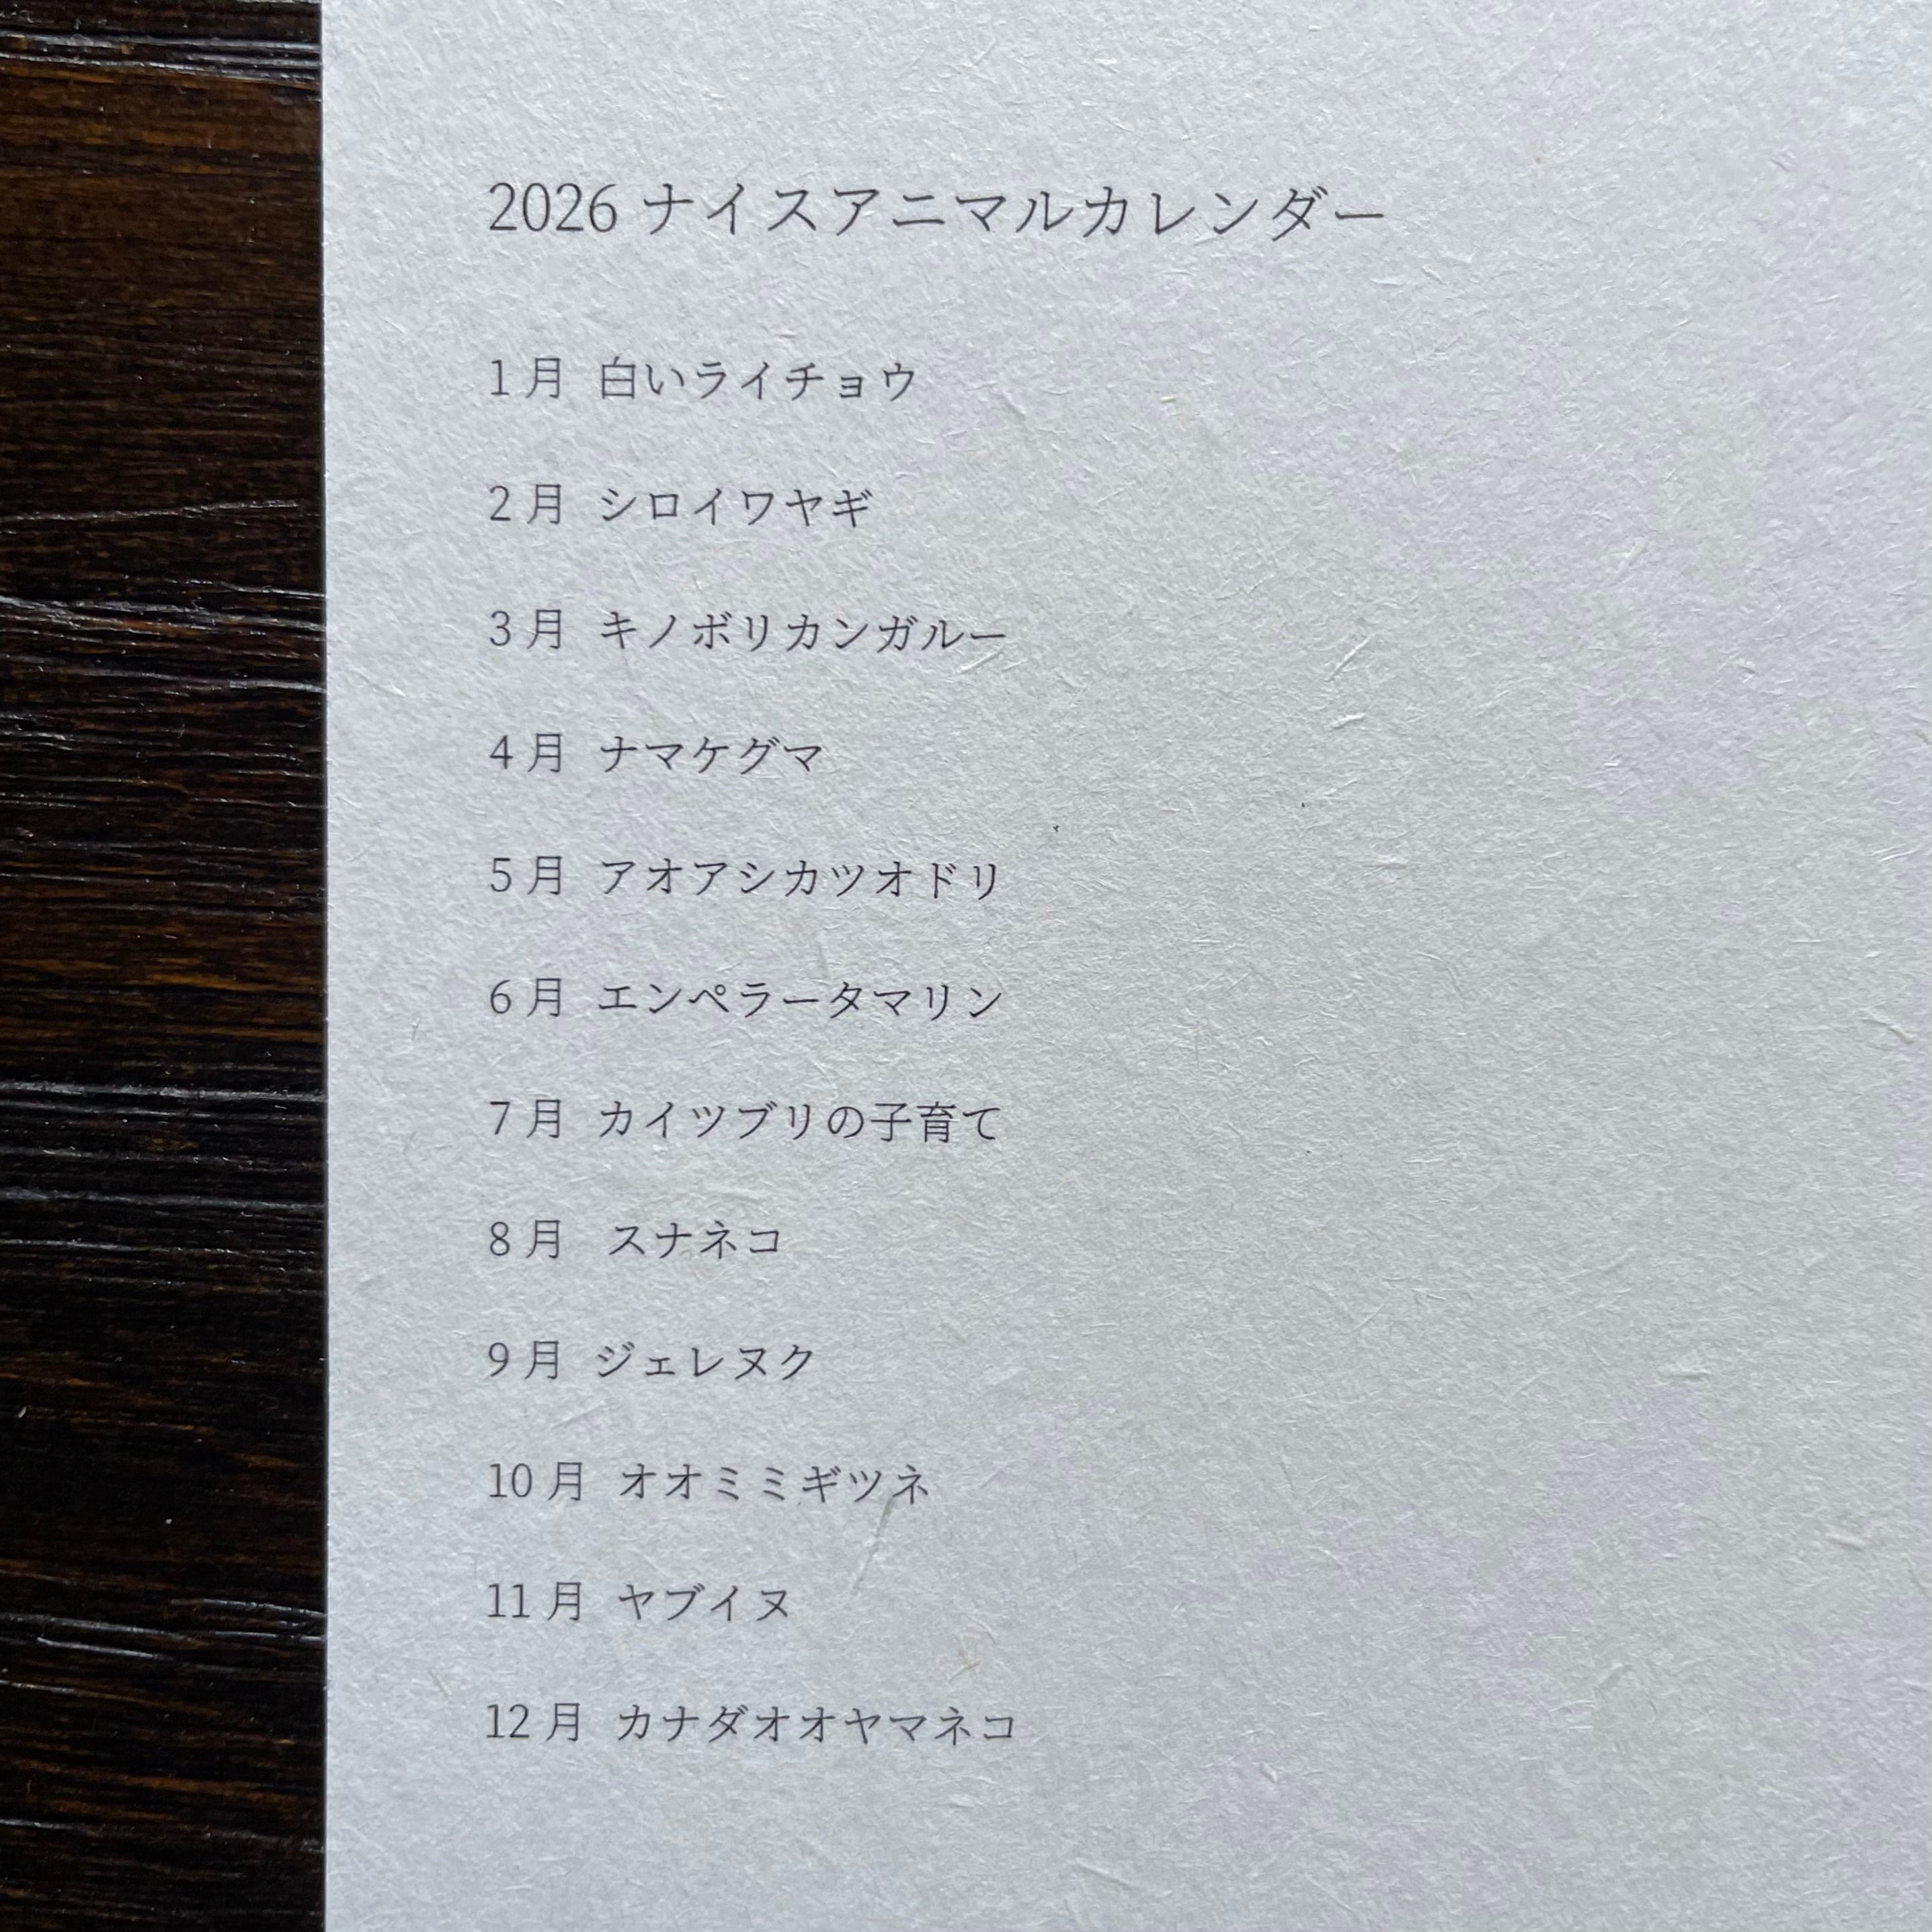 2026 ナイスアニマルカレンダー
1月 白いライチョウ
2月 シロイワヤギ
3月 キノボリカンガルー
4月 ナマケグマ
5月 アオアシカツオドリ
6月 エンペラータマリン
7月 カイツブリの子育て
8月 スナネコ
9月 ジェレヌク
10月 オオミミギツネ
11月 ヤブイヌ
12月 カナダオオヤマネコ